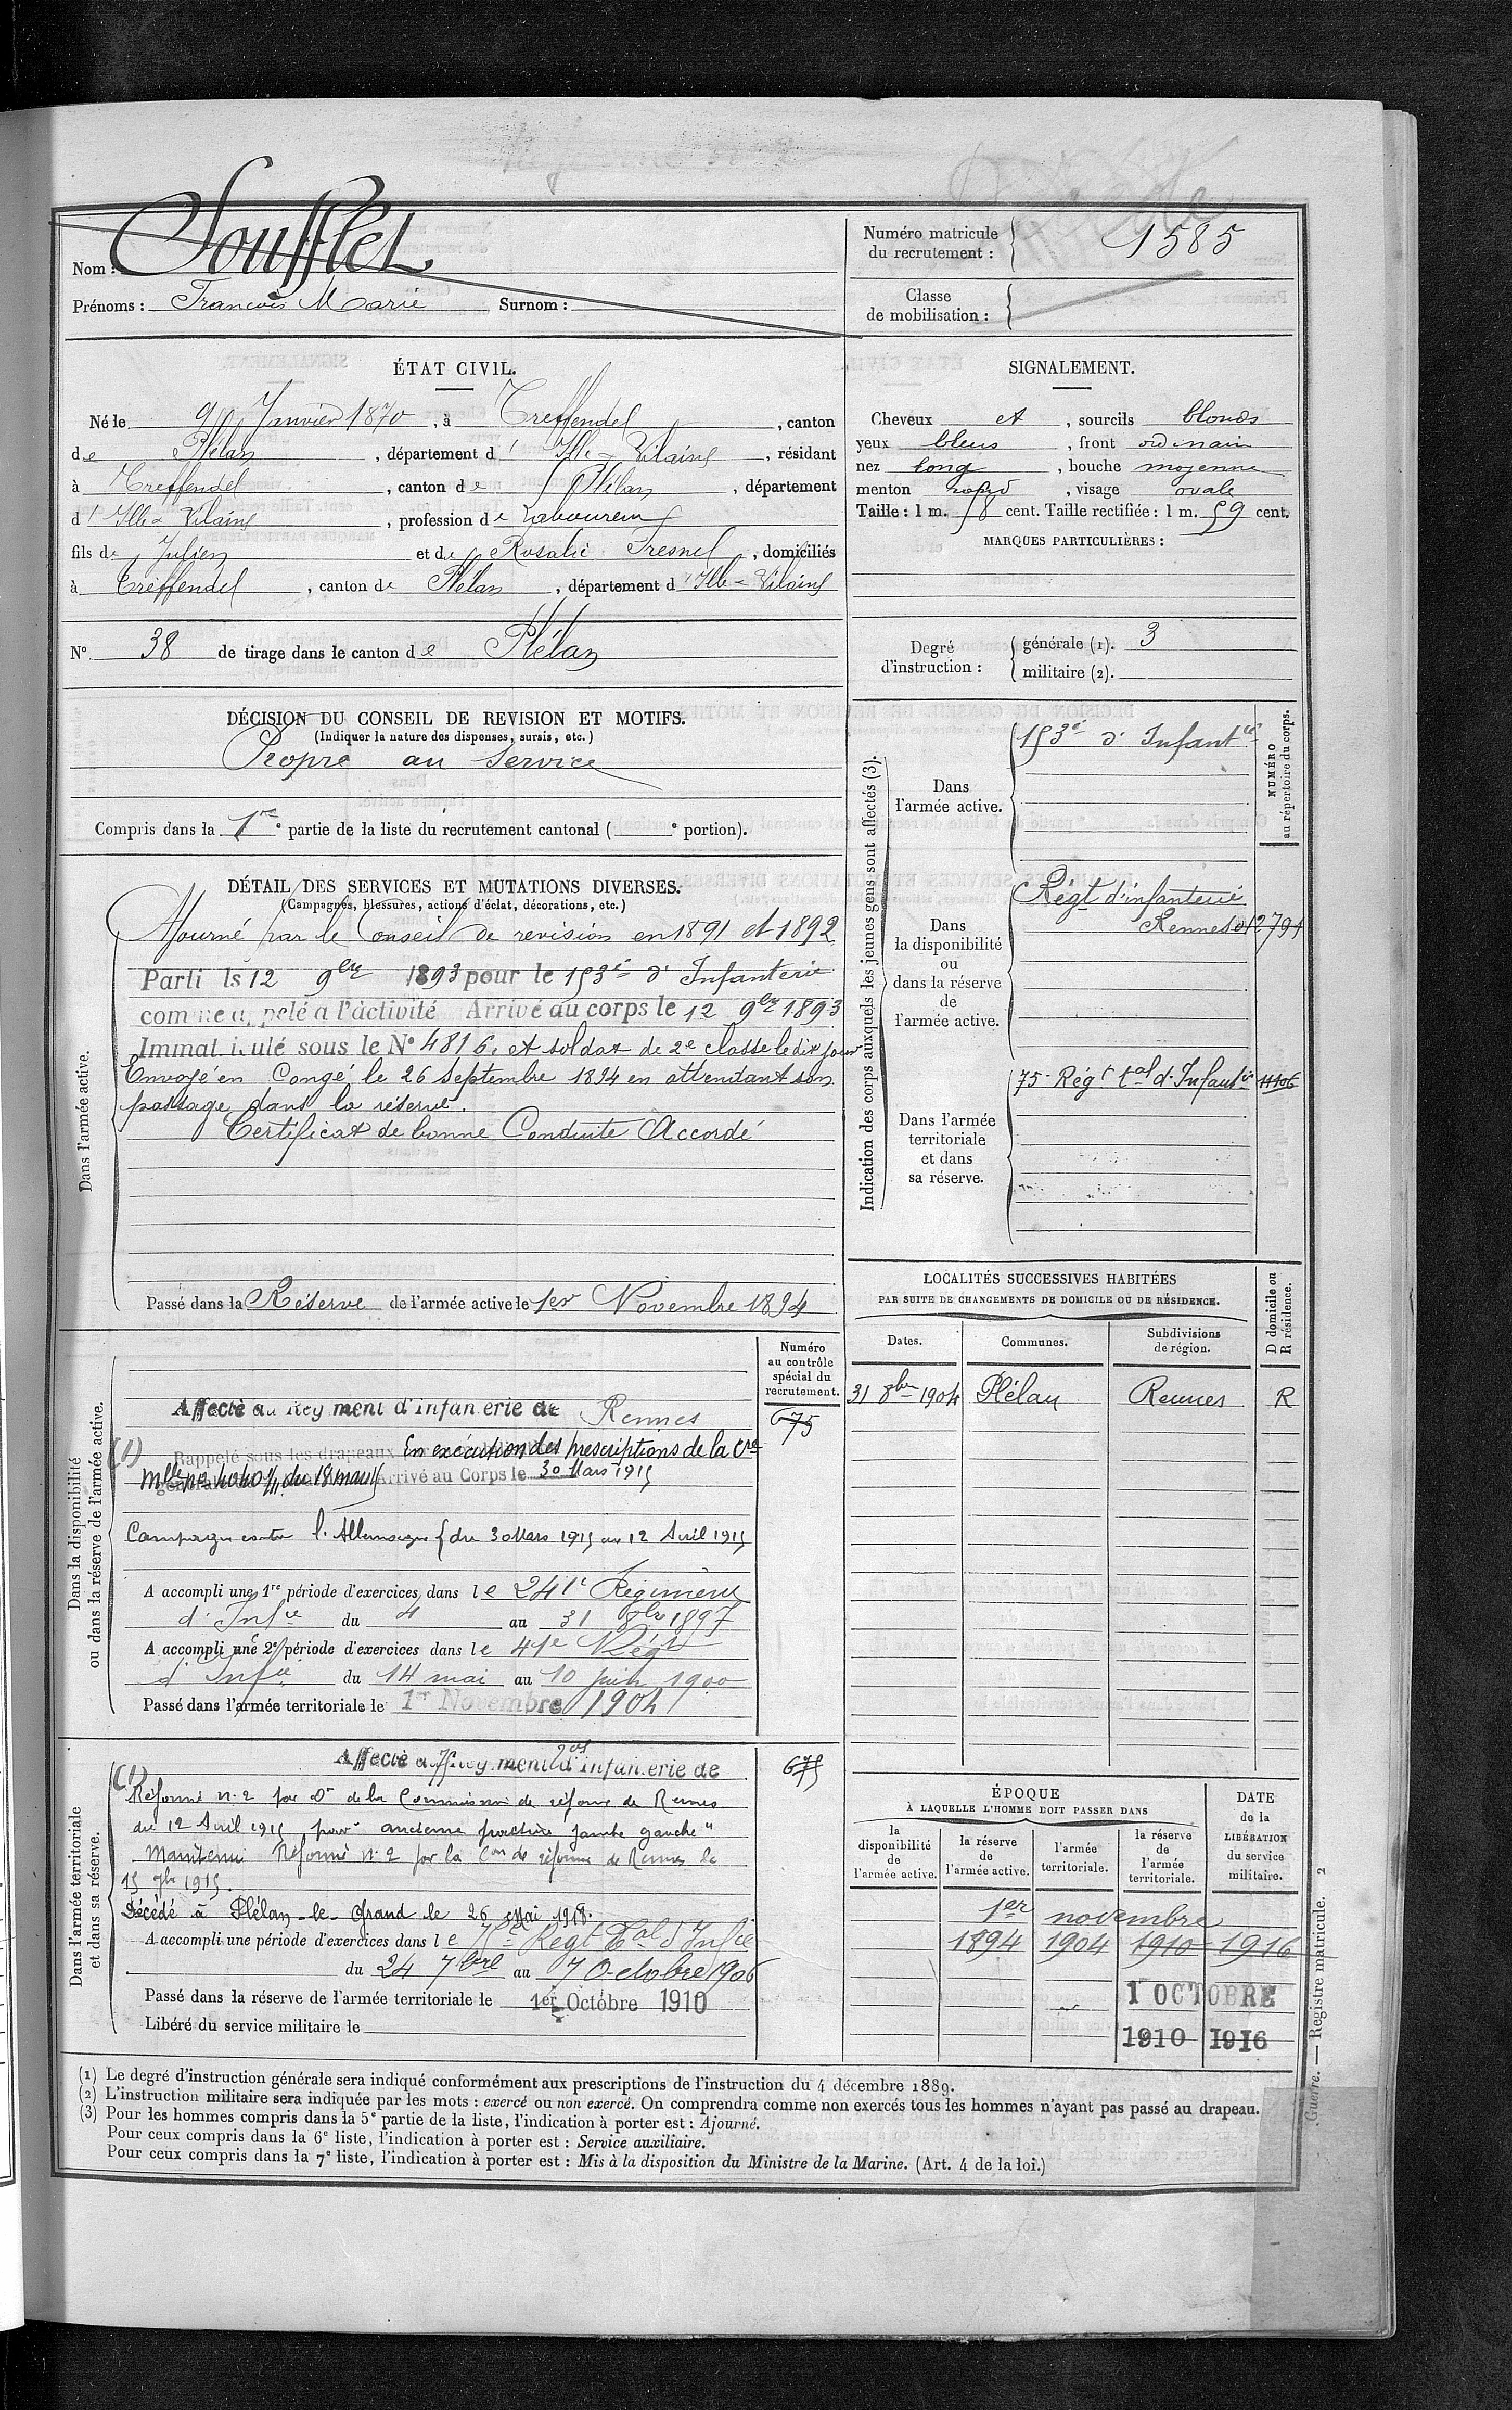 Décédé
Nom : Soufflet
Prénoms : François Marie Surnom :
Numéro matricule
du recrutement : 1585
Classe
de mobilisation :
ÉTAT CIVIL.
Né le 9 Janvier 1870, à Treffendel, canton
de Plélan, département d' Ille-Vilaine, résidant
à Treffendel, canton de Plélan, département
d' Ille & Vilaine, profession de Laboureur
fils de Julien et de Rosalie Fresnel, domiciliés
à Treffendel, canton de Plélan, département d' Ille-Vilaine
N° 38 de tirage dans le canton de Plélan
SIGNALEMENT.
Cheveux et, sourcils blonds
yeux bleus, front ordinaire
nez long, bouche moyenne
menton rond, visage ovale
Taille : 1 m. 58 cent. Taille rectifiée : 1 m. 59 cent.
MARQUES PARTICULIÈRES :
Degré
d'instruction :
générale (1). 3
militaire (2).
DÉCISION DU CONSEIL DE REVISION ET MOTIFS.
(Indiquer la nature des dispenses, sursis, etc.)
Propre au Service
Compris dans la 1re e partie de la liste du recrutement cantonal ( e portion).
DÉTAIL DES SERVICES ET MUTATIONS DIVERSES.
(Campagnes, blessures, actions d'éclat, décorations, etc.)
Dans l'armée active.
Ajourné par le Conseil de revision en 1891 et 1892
Parti le 12 9bre 1893 pour le 153e d' Infanterie
comme appelé à l'activité Arrivé au corps le 12 9bre 1893
Immatriculé sous le N° 4816, et soldat de 2e classe le dit jour
Envoyé en Congé le 26 Septembre 1894 en attendant son
passage dans la réserve.
Certificat de bonne Conduite Accordé
Passé dans la Réserve de l'armée active le 1er Novembre 1894
Indication des corps auxquels les jeunes gens sont affectés (3).
NUMÉRO
au répertoire du corps.
Dans
l'armée active.
153e d' Infantie
Dans
la disponibilité
ou
dans la réserve
de
l'armée active.
Régt d'infanterie
Rennes 2791
Dans l'armée
territoriale
et dans
sa réserve.
75e Régt tal d'Infantie 11106
LOCALITÉS SUCCESSIVES HABITÉES
PAR SUITE DE CHANGEMENTS DE DOMICILE OU DE RÉSIDENCE.
D domicile ou
R résidence.
Dates. Communes. Subdivisions
de région.
31 8bre 1904 Plélan Rennes R
Dans la disponibilité
ou dans la réserve de l'armée active.
Numéro
au contrôle
spécial du
recrutement.
Affecté au Régiment d'infanterie de Rennes 675
(1) Rappelé sous les drapeaux En exécution des prescriptions de la Cre
Mlle no 4040 1/11 du 18 mars 15 Arrivé au Corps le 30 Mars 1915
Campagne contre l'Allemagne { du 30 Mars 1915 au 12 Avril 1915
A accompli une 1re période d'exercices dans le 241e Régiment
d' Infie du 4 au 31 8bre 1897
A accompli une 2e période d'exercices dans le 41e Régt
d' Infie du 14 mai au 10 juin 1900
Passé dans l'armée territoriale le 1er Novembre 1904
Dans l'armée territoriale
et dans sa réserve.
Affecté au 75 Régiment tal d'infanterie de 675
(1)
Réformé n° 2 par Don de la Commission de réforme de Rennes
du 12 Avril 1915 pour "ancienne fracture jambe gauche"
Maintenu Réformé n° 2 par la Con de réforme de Rennes le
15 9bre 1915.
Décédé à Plélan-le-Grand le 26 Mai 1918.
A accompli une période d'exercices dans le 75e Régt Tal d'Infie
du 24 7bre au 7 Octobre 1906
Passé dans la réserve de l'armée territoriale le 1er Octobre 1910
Libéré du service militaire le
ÉPOQUE
À LAQUELLE L'HOMME DOIT PASSER DANS
DATE
de la
LIBÉRATION
du service
militaire.
la
disponibilité
de
l'armée active.
la réserve
de
l'armée active.
l'armée
territoriale.
la réserve
de
l'armée
territoriale.
1er novembre
1894 1904 1910 1916
1 OCTOBRE
1910 1916
(1) Le degré d'instruction générale sera indiqué conformément aux prescriptions de l'instruction du 4 décembre 1889.
(2) L'instruction militaire sera indiquée par les mots : exercé ou non exercé. On comprendra comme non exercés tous les hommes n'ayant pas passé au drapeau.
(3) Pour les hommes compris dans la 5e partie de la liste, l'indication à porter est : Ajourné.
Pour ceux compris dans la 6e liste, l'indication à porter est : Service auxiliaire.
Pour ceux compris dans la 7e liste, l'indication à porter est : Mis à la disposition du Ministre de la Marine. (Art. 4 de la loi.)
Guerre. — Registre matricule. 2